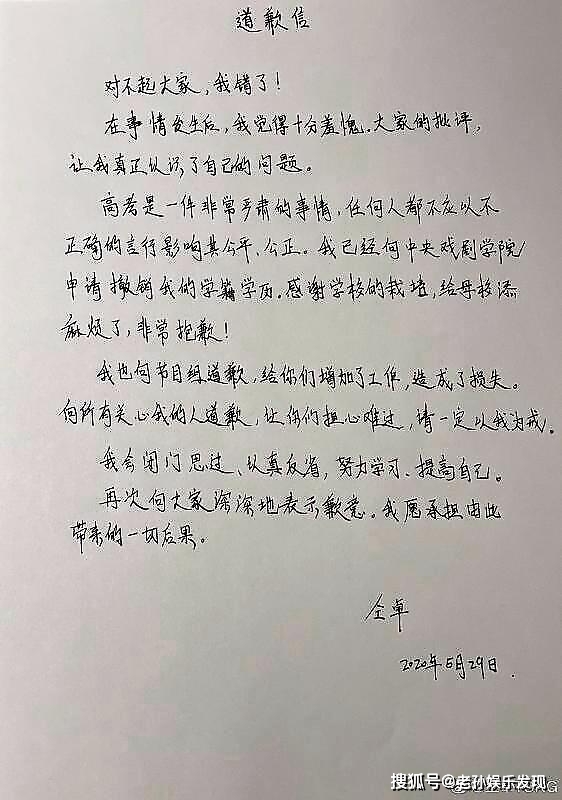 道歉信
对不起大家，我错了！
在事情发生后，我觉得十分羞愧。大家的批评，
让我真正认识了自己的问题。
高考是一件非常严肃的事情，任何人都不应以不
正确的言行影响其公平、公正。我已经向中央戏剧学院
申请撤销我的学籍学历。感谢学校的栽培，给母校添
麻烦了，非常抱歉！
我也向节目组道歉，给你们增加了工作，造成了损失。
向所有关心我的人道歉，让你们担心难过，请一定以我为戒。
我会闭门思过、认真反省，努力学习、提高自己。
再次向大家深深地表示歉意。我愿承担由此
带来的一切后果。
仝卓
2020年5月29日.
搜狐号@老孙娱乐发现